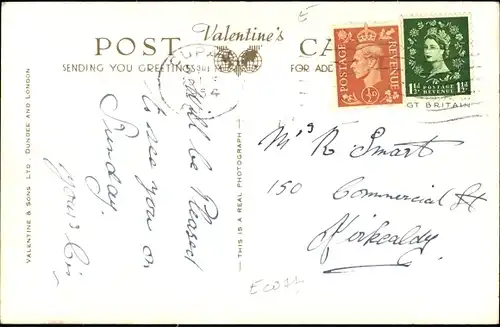 Valentine's
POST CA
SENDING YOU GREETINGS
FOR ADD
POSTAGE
REVENUE
½D
1½D POSTAGE REVENUE 1½D
GT BRITAIN
VALENTINE & SONS. LTD. DUNDEE AND LONDON
THIS IS A REAL PHOTOGRAPH
Will be Pleased
to see you on
Sunday.
yours
Mrs R Smart
150 Commercial St
Kirkcaldy